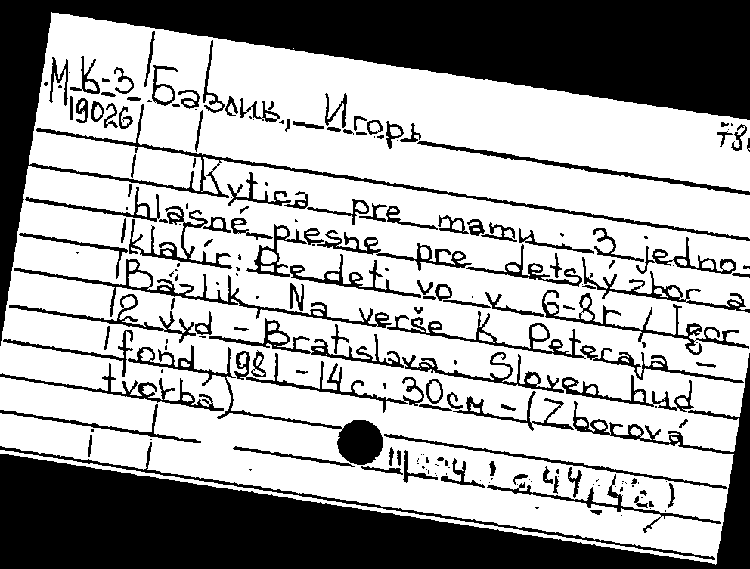 МК-3 Базлик, Игорь
19026
Kytica pre mamu : 3 jedno-
hlasné piesne pre detský zbor a
klavír: Pre deti vo v. 6-8r / Igor
Bázlik; Na verše K. Peteraja -
2. vyd - Bratislava: Sloven hud
fond, 1981 - 14с.; 30см - (Zborová
tvorba)